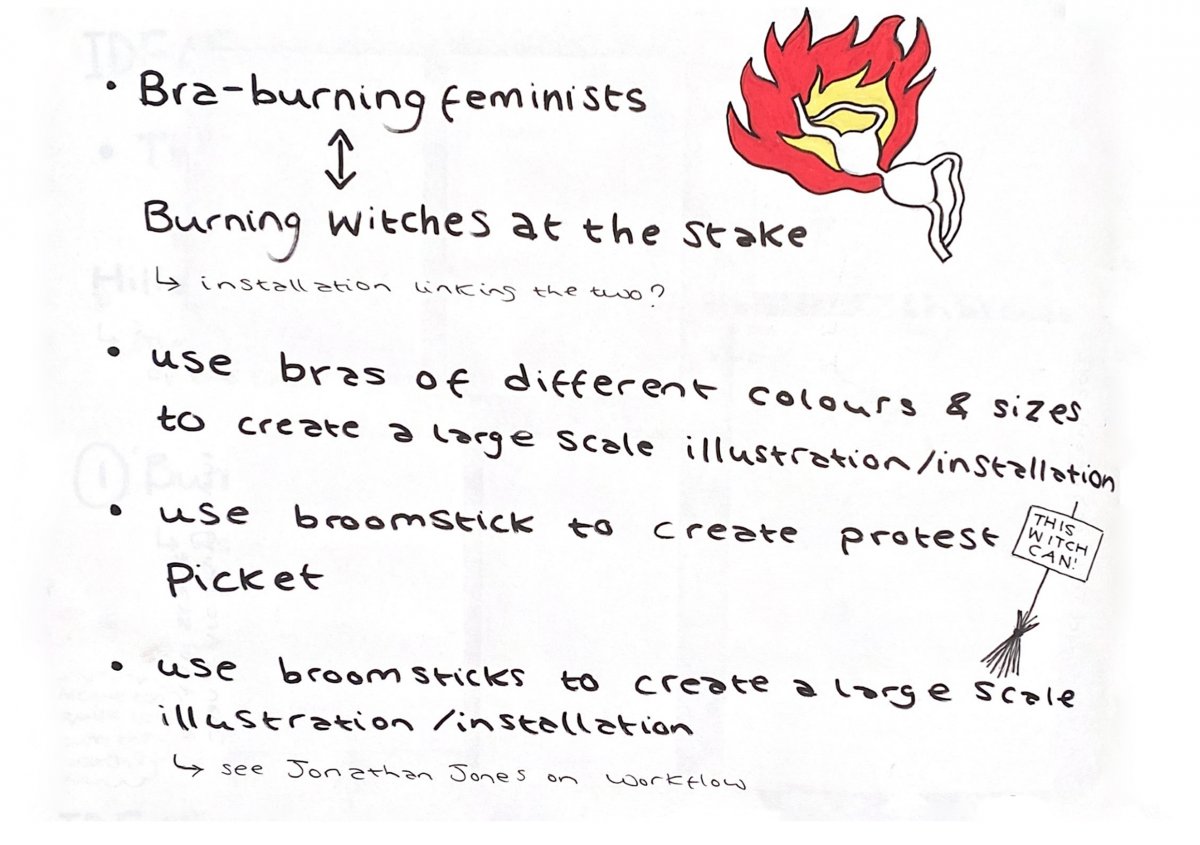 • Bra-burning feminists
↕
Burning witches at the stake
↳ installation linking the two?
• use bras of different colours & sizes
to create a large scale illustration/installation
• use broomstick to create protest
Picket
THIS
WITCH
CAN!
• use broomsticks to create a large scale
illustration/installation
↳ see Jonathan Jones on workflow